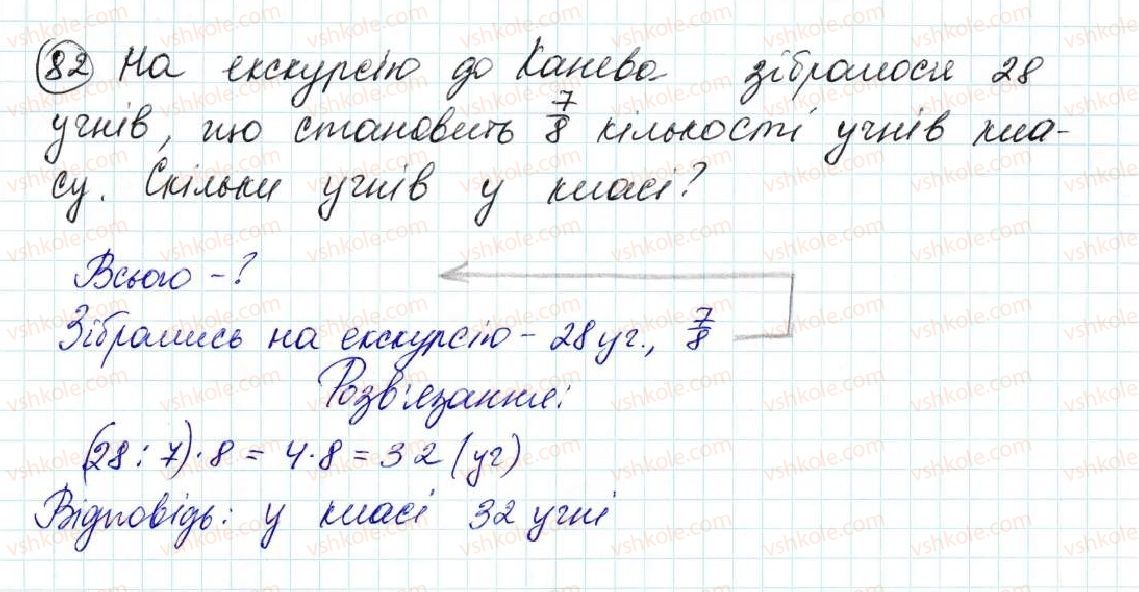 82 На екскурсію до Канева зібралося 28
учнів, що становить 7/8 кількості учнів кла-
су. Скільки учнів у класі?
Всього - ?
Зібрались на екскурсію - 28 уч., 7/8
Розв'язання:
(28 : 7) · 8 = 4 · 8 = 32 (уч)
Відповідь: у класі 32 учні